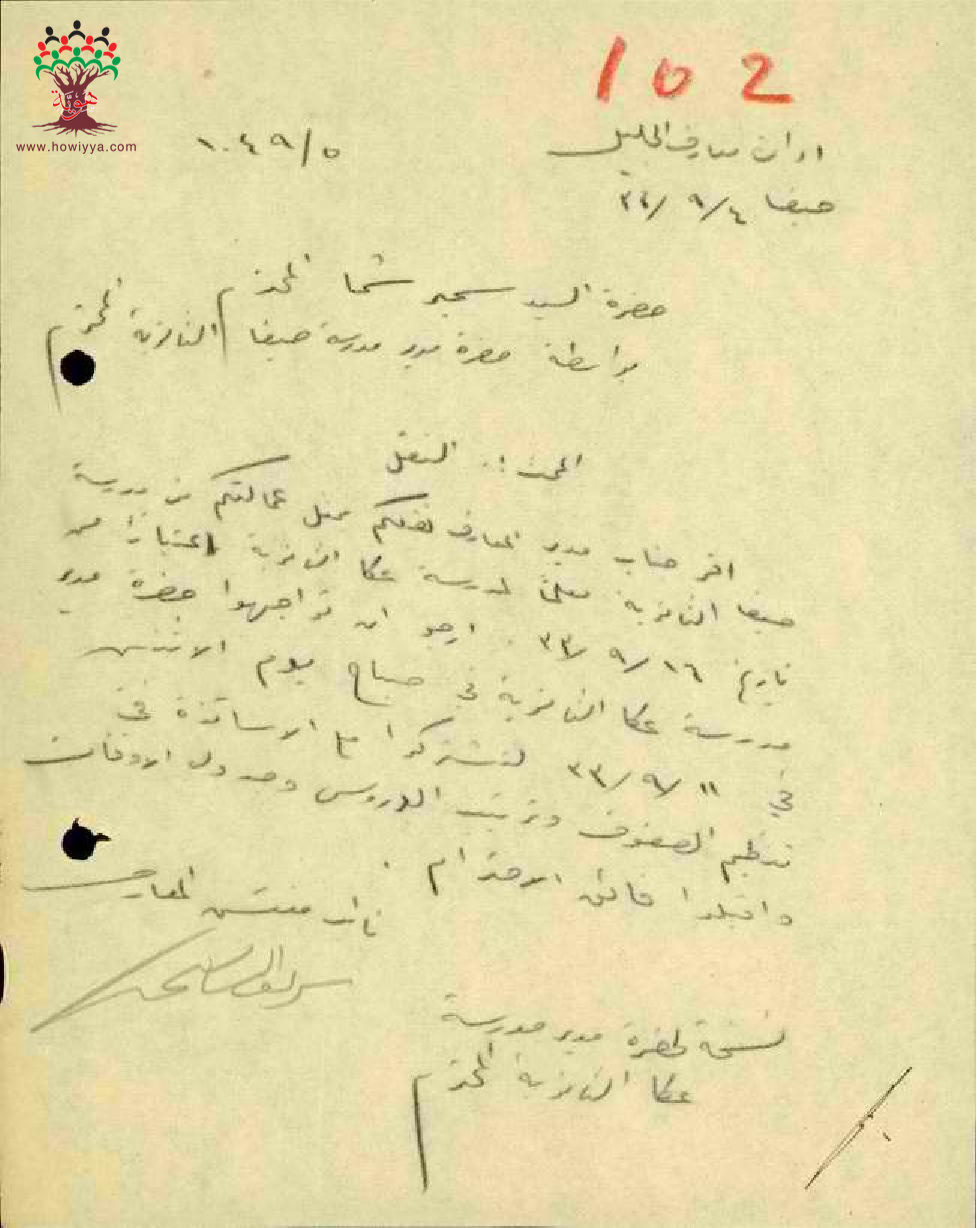 هوية
www.howiyya.com
102
ادارة معارف الجليل
١٠٤٩/٥
حيفا ٩/٤/٣٣
حضرة السيد سمير شما المحترم
بواسطة حضرة مدير مدرسة حيفا الثانوية المحترم
البحث :. النقل
اقر جناب مدير المعارف نقلكم محل عمالتكم من مدرسة
حيفا الثانوية معلمًا لمدرسة عكا الثانوية اعتبارًا من
تاريخ ٩/١٦/٣٣ . ارجو ان تواجهوا حضرة مدير
مدرسة عكا الثانوية في صباح يوم الاثنين
في ٩/١١/٣٣ لتشتركوا مع الاساتذة في
تنظيم الصفوف وترتيب الدروس وجدول الاوقات
واقبلوا فائق الاحترام .
نائب مفتش المعارف
نسخة لحضرة مدير مدرسة
عكا الثانوية المحترم